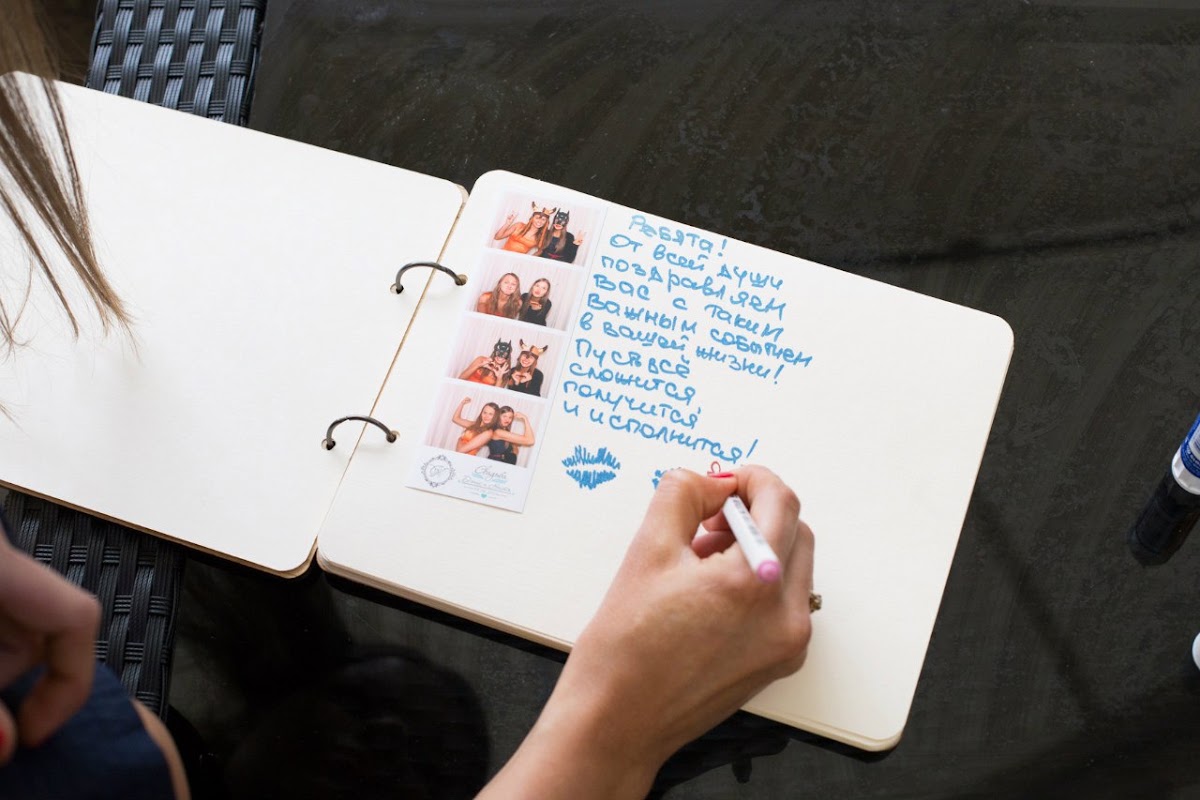 Ребята!
От всей души
поздравляем
Вас с таким
важным событием
в вашей жизни!
Пусть всё
сложится,
получится,
и исполнится!